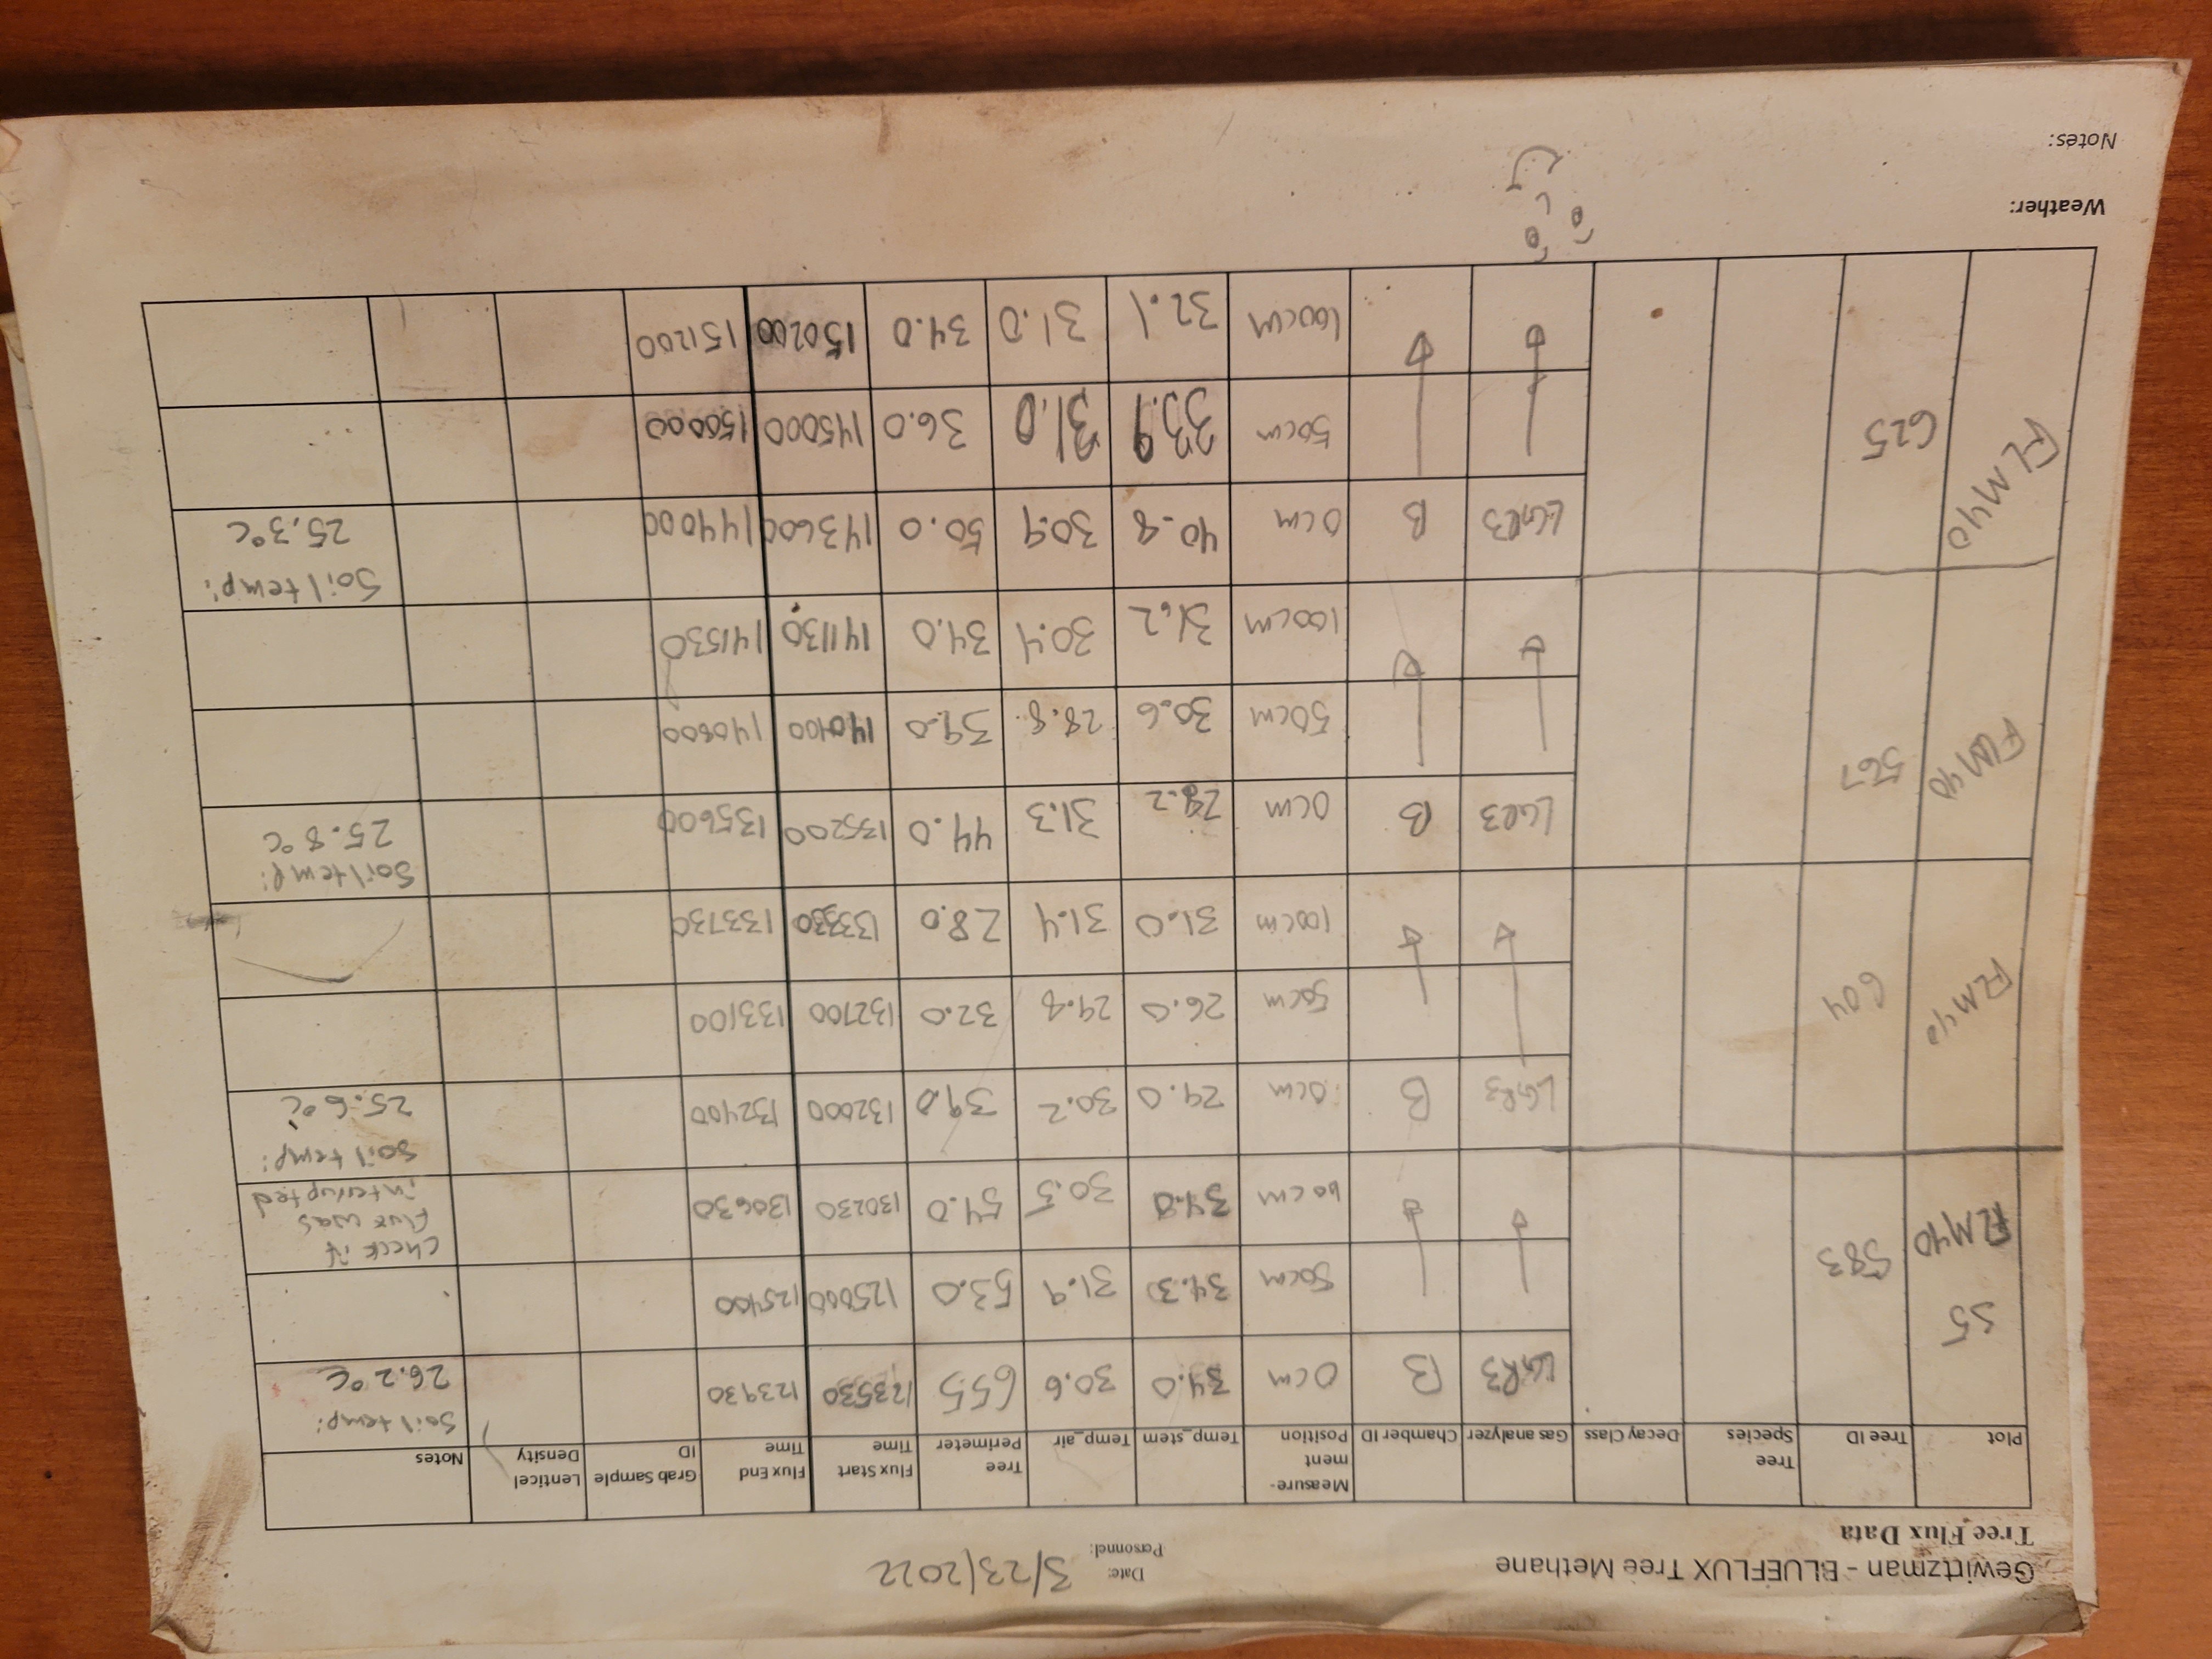 Gewirtzman - BLUEFLUX Tree Methane
Tree Flux Data
Date: 3/23/2022
Personnel:
Plot Tree ID Tree Species Decay Class Gas analyzer Chamber ID Measure-ment Position Temp_stem Temp_air Tree Perimeter Flux Start Time Flux End Time Grab Sample ID Lenticel Density Notes
S5 FLM40 583 LGR3 B 0cm 34.0 30.6 65.5 123530 123930 Soil temp: 26.2°C
50cm 34.3 31.9 53.0 125000 125400
60cm 34.0 30.5 54.0 130230 130630 Check if flux was interrupted
FLM40 604 LGR3 B 0cm 29.0 30.2 39.0 132000 132400 Soil temp: 25.6°C
50cm 26.0 29.8 32.0 132700 133100
100cm 31.0 31.4 28.0 133330 133730
FLM40 567 LGR3 B 0cm 28.2 31.3 44.0 135200 135600 Soil temp: 25.8°C
50cm 30.6 28.8 39.0 140400 140800
100cm 31.2 30.4 34.0 141130 141530
FLM40 625 LGR3 B 0cm 40.8 30.9 50.0 143600 144000 Soil temp: 25.3°C
50cm 33.9 31.0 36.0 145000 150000
100cm 32.1 31.0 34.0 150200 151200
Weather:
Notes: